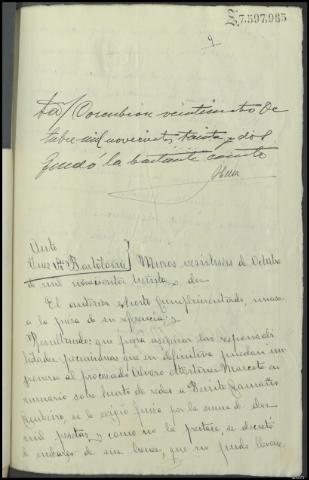 7.597.965
9
Corcubion veintiocho de
tubre mil novecientos treinta y dos
Quedó la bastante cuenta
Auto
Juez Sr. Bartolomé Muros veintiseis de Octubre
de mil novecientos treinta y dos
El anterior exhorto cumplimentado, unase
a la pieza de su referencia; y
Resultando: que para asegurar las responsabi
lidades pecuniarias que en definitiva puedan im
ponerse al procesado Alvaro Martinez Marcote en
sumario sobre hurto de redes a Benito Lamas
se le exigió fianza por la suma de dos
mil pesetas, y como no la prestase, se decretó
el embargo de sus bienes, que no pudo llevarse